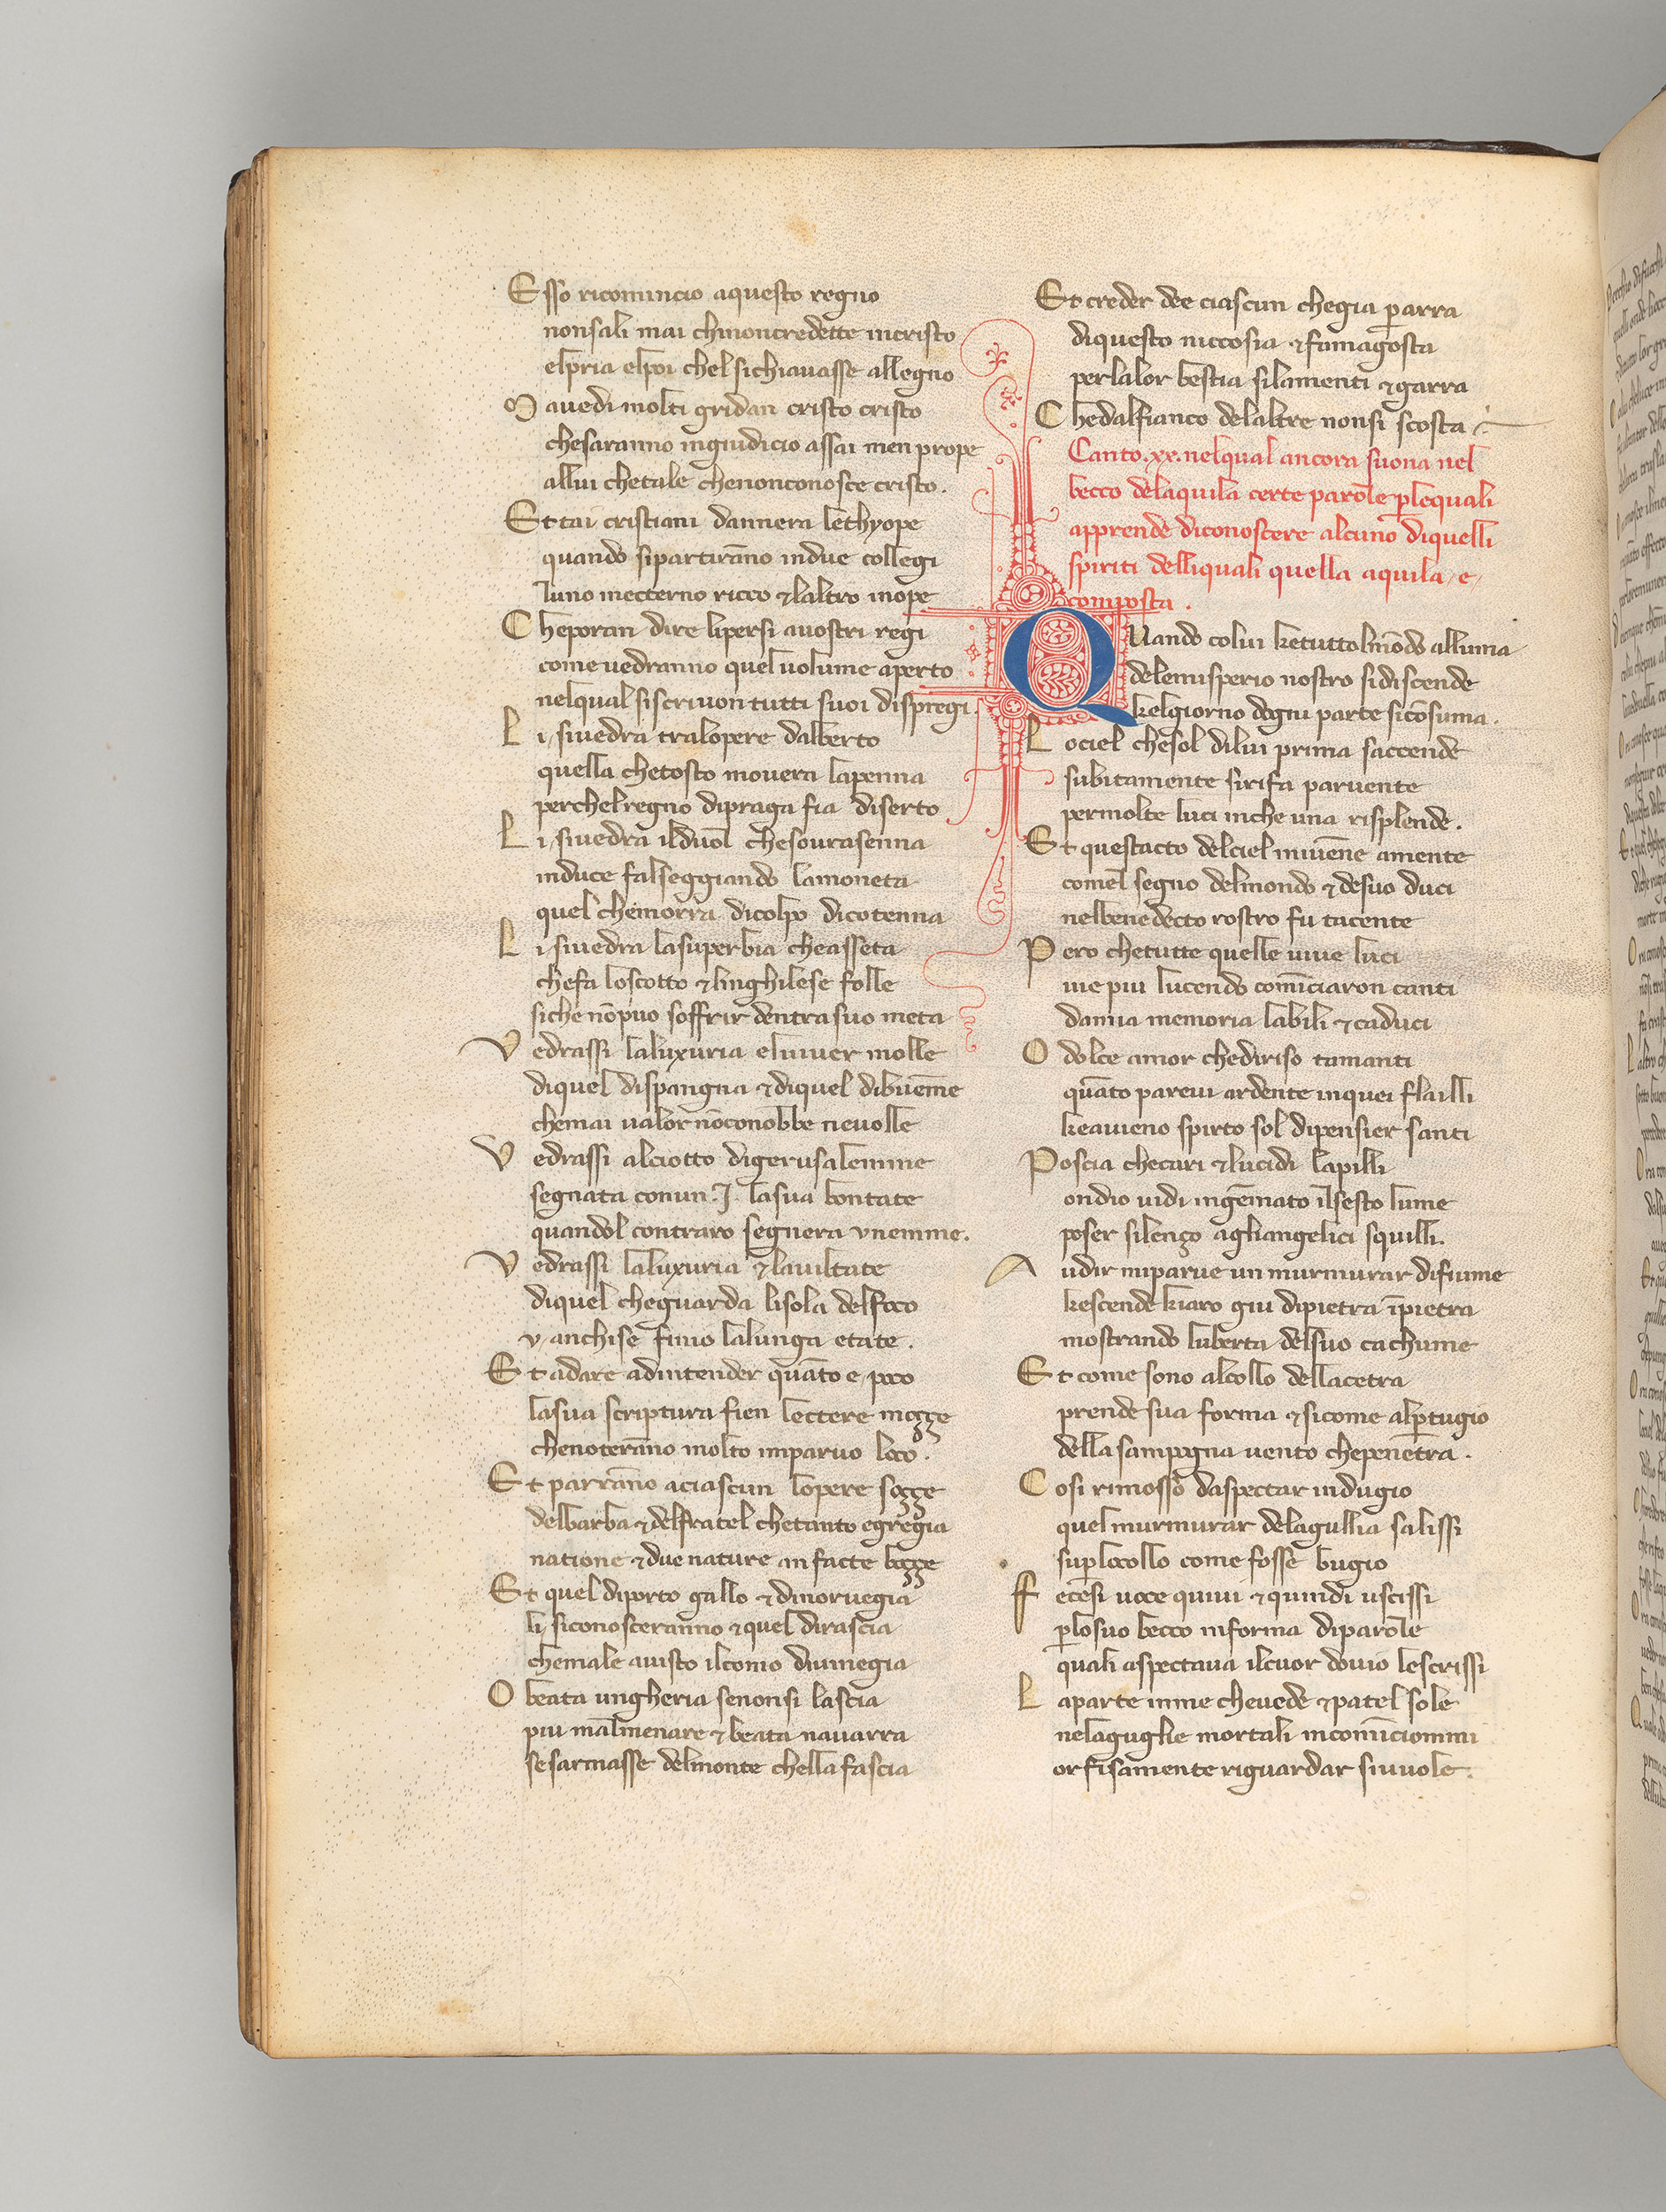 Esso ricomincio aquesto regno
nonsali mai chinoncredette incristo
elpria elpoi chel sichiauasse allegno
Mauedi molti gridan cristo cristo
chesaranno ingiudicio assai men prope
allui chetale chenonconosce cristo.
Et tai cristiani dannera lethyope
quando sipartirāno indue collegi
luno inecterno ricco ⁊ laltro inope
Cheporan dire lipersi auostri regi
come uedranno quel uolume aperto
nelqual siscriuon tutti suoi dispregi
Li siuedra tralopere dalberto
quella chetosto mouera lapenna
perchelregno dipraga fia diserto
Li siuedra ilduol chesourasenna
induce falseggiando lamoneta
quel chemorra dicolpo dicotenna
Li siuedra lasuperbia cheasseta
chefa loscotto ⁊ linghilese folle
siche nōpuo soffrir dentrasuo meta
Vedrassi laluxuria eluiuer molle
diquel dispangna ⁊ diquel dibuēme
chemai ualor nōconobbe neuolle
Vedrassi alciotto digerusalemme
segnata conun .J. lasua bontate
quandol contraro segnera vnemme.
Vedrassi laluxuria ⁊ lauiltate
diquel cheguarda lisola delfoco
v anchise finio lalunga etate.
Et adare adintender quāto e poco
lasua scriptura fien lectere mozze
chenoterāno molto imparuo loco.
Et parrāno aciascun lopere sozze
delbarba ⁊ delfratel chetanto egregia
natione ⁊ due nature an facte bozze
Et quel diporto gallo ⁊ dinoruegia
li siconosceranno ⁊ quel dirascia
chemale auisto ilconio diuinegia
O beata ungheria senonsi lascia
piu malmenare ⁊ beata nauarra
sesarmasse delmonte chella fascia
Et creder dee ciascun chegia parra
diquesto niccosia ⁊ famagosta
perlalor bestia silamenti ⁊ garra
Chedalfianco delaltre nonsi scosta
Canto .xx. nelqual ancora suona nel
becco delaquila certe parole p̱lequali
apprende diconoscere alcuno diquelli
spiriti delliquali quella aquila e
composta .
QVando colui ketuttolmōdo alluma
delemisperio nostro sidiscende
kelgiorno dogni parte sicōsuma .
Lociel chesol dilui prima saccende
subitamente sirifa paruente
permolte luci inche una risplende .
Et questacto delciel miuēne amente
comel segno delmondo ⁊ desuo duci
nelbenedecto rostro fu tacente
Pero chetutte quelle uiue luci
uie piu lucendo comīciaron canti
damia memoria labili ⁊ caduci
O dolce amor chediriso tamanti
quāto pareui ardente inquei flailli
keauieno spirto sol dipensier santi
Poscia checari ⁊ lucidi lapilli
ondio uidi ingēmato ilsesto lume
poser silenço agliangelici squilli.
Audir miparue un murmurar difiume
kescende kiaro giu dipietra īpietra
mostrando luberta delsuo cachume
Et come sono alcollo dellacetra
prende sua forma ⁊ sicome alp̱tugio
della sampogna uento chepenetra .
Cosi rimosso daspectar indugio
quel murmurar delagullia salissi
sup̱locollo come fosse bugio
Fecesi uoce quiui ⁊ quindi uscissi
p̱losuo becco informa diparole
quali aspectaua ilcuor douio lescrissi
Laparte inme cheuede ⁊ patel sole
nelaguglie mortali incomīciommi
or fisamente riguardar siuuole.